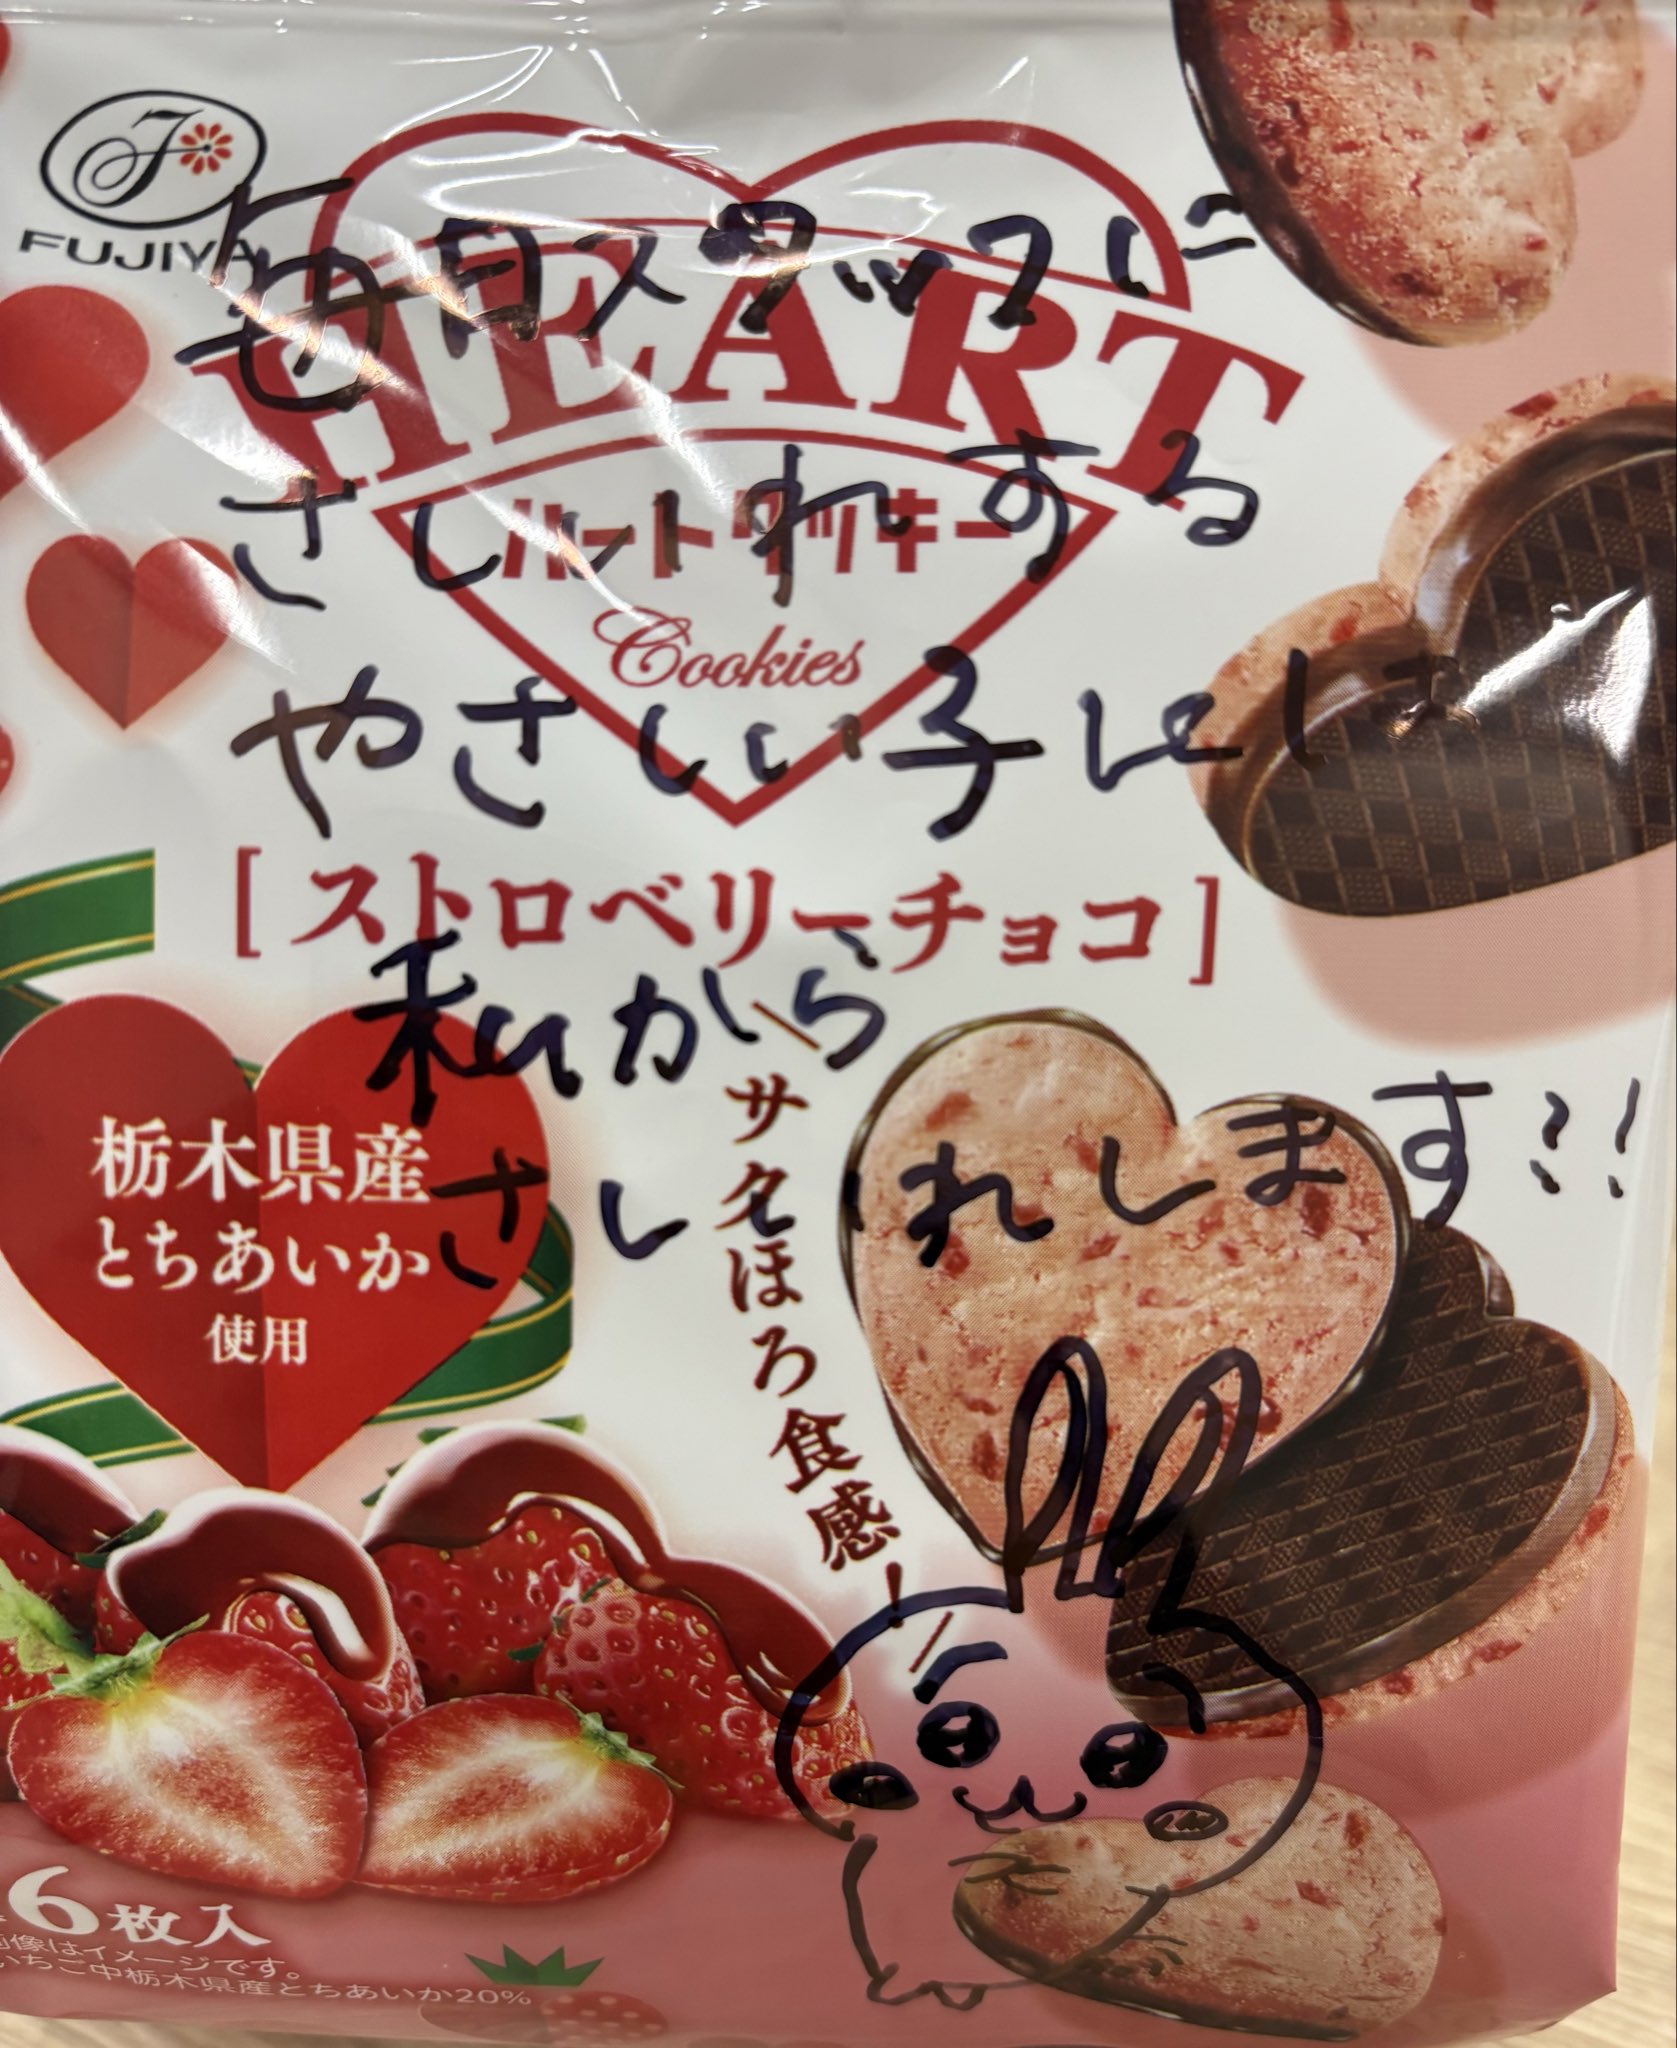 FUJIYA
HEART
ハートクッキー
Cookies
毎日スタッフに
さしいれする
やさしい子には
[ストロベリーチョコ]
私から
さしいれします!!
栃木県産
とちあいか
使用
サクほろ食感!
6枚入
画像はイメージです。
いちご中栃木県産とちあいか20%